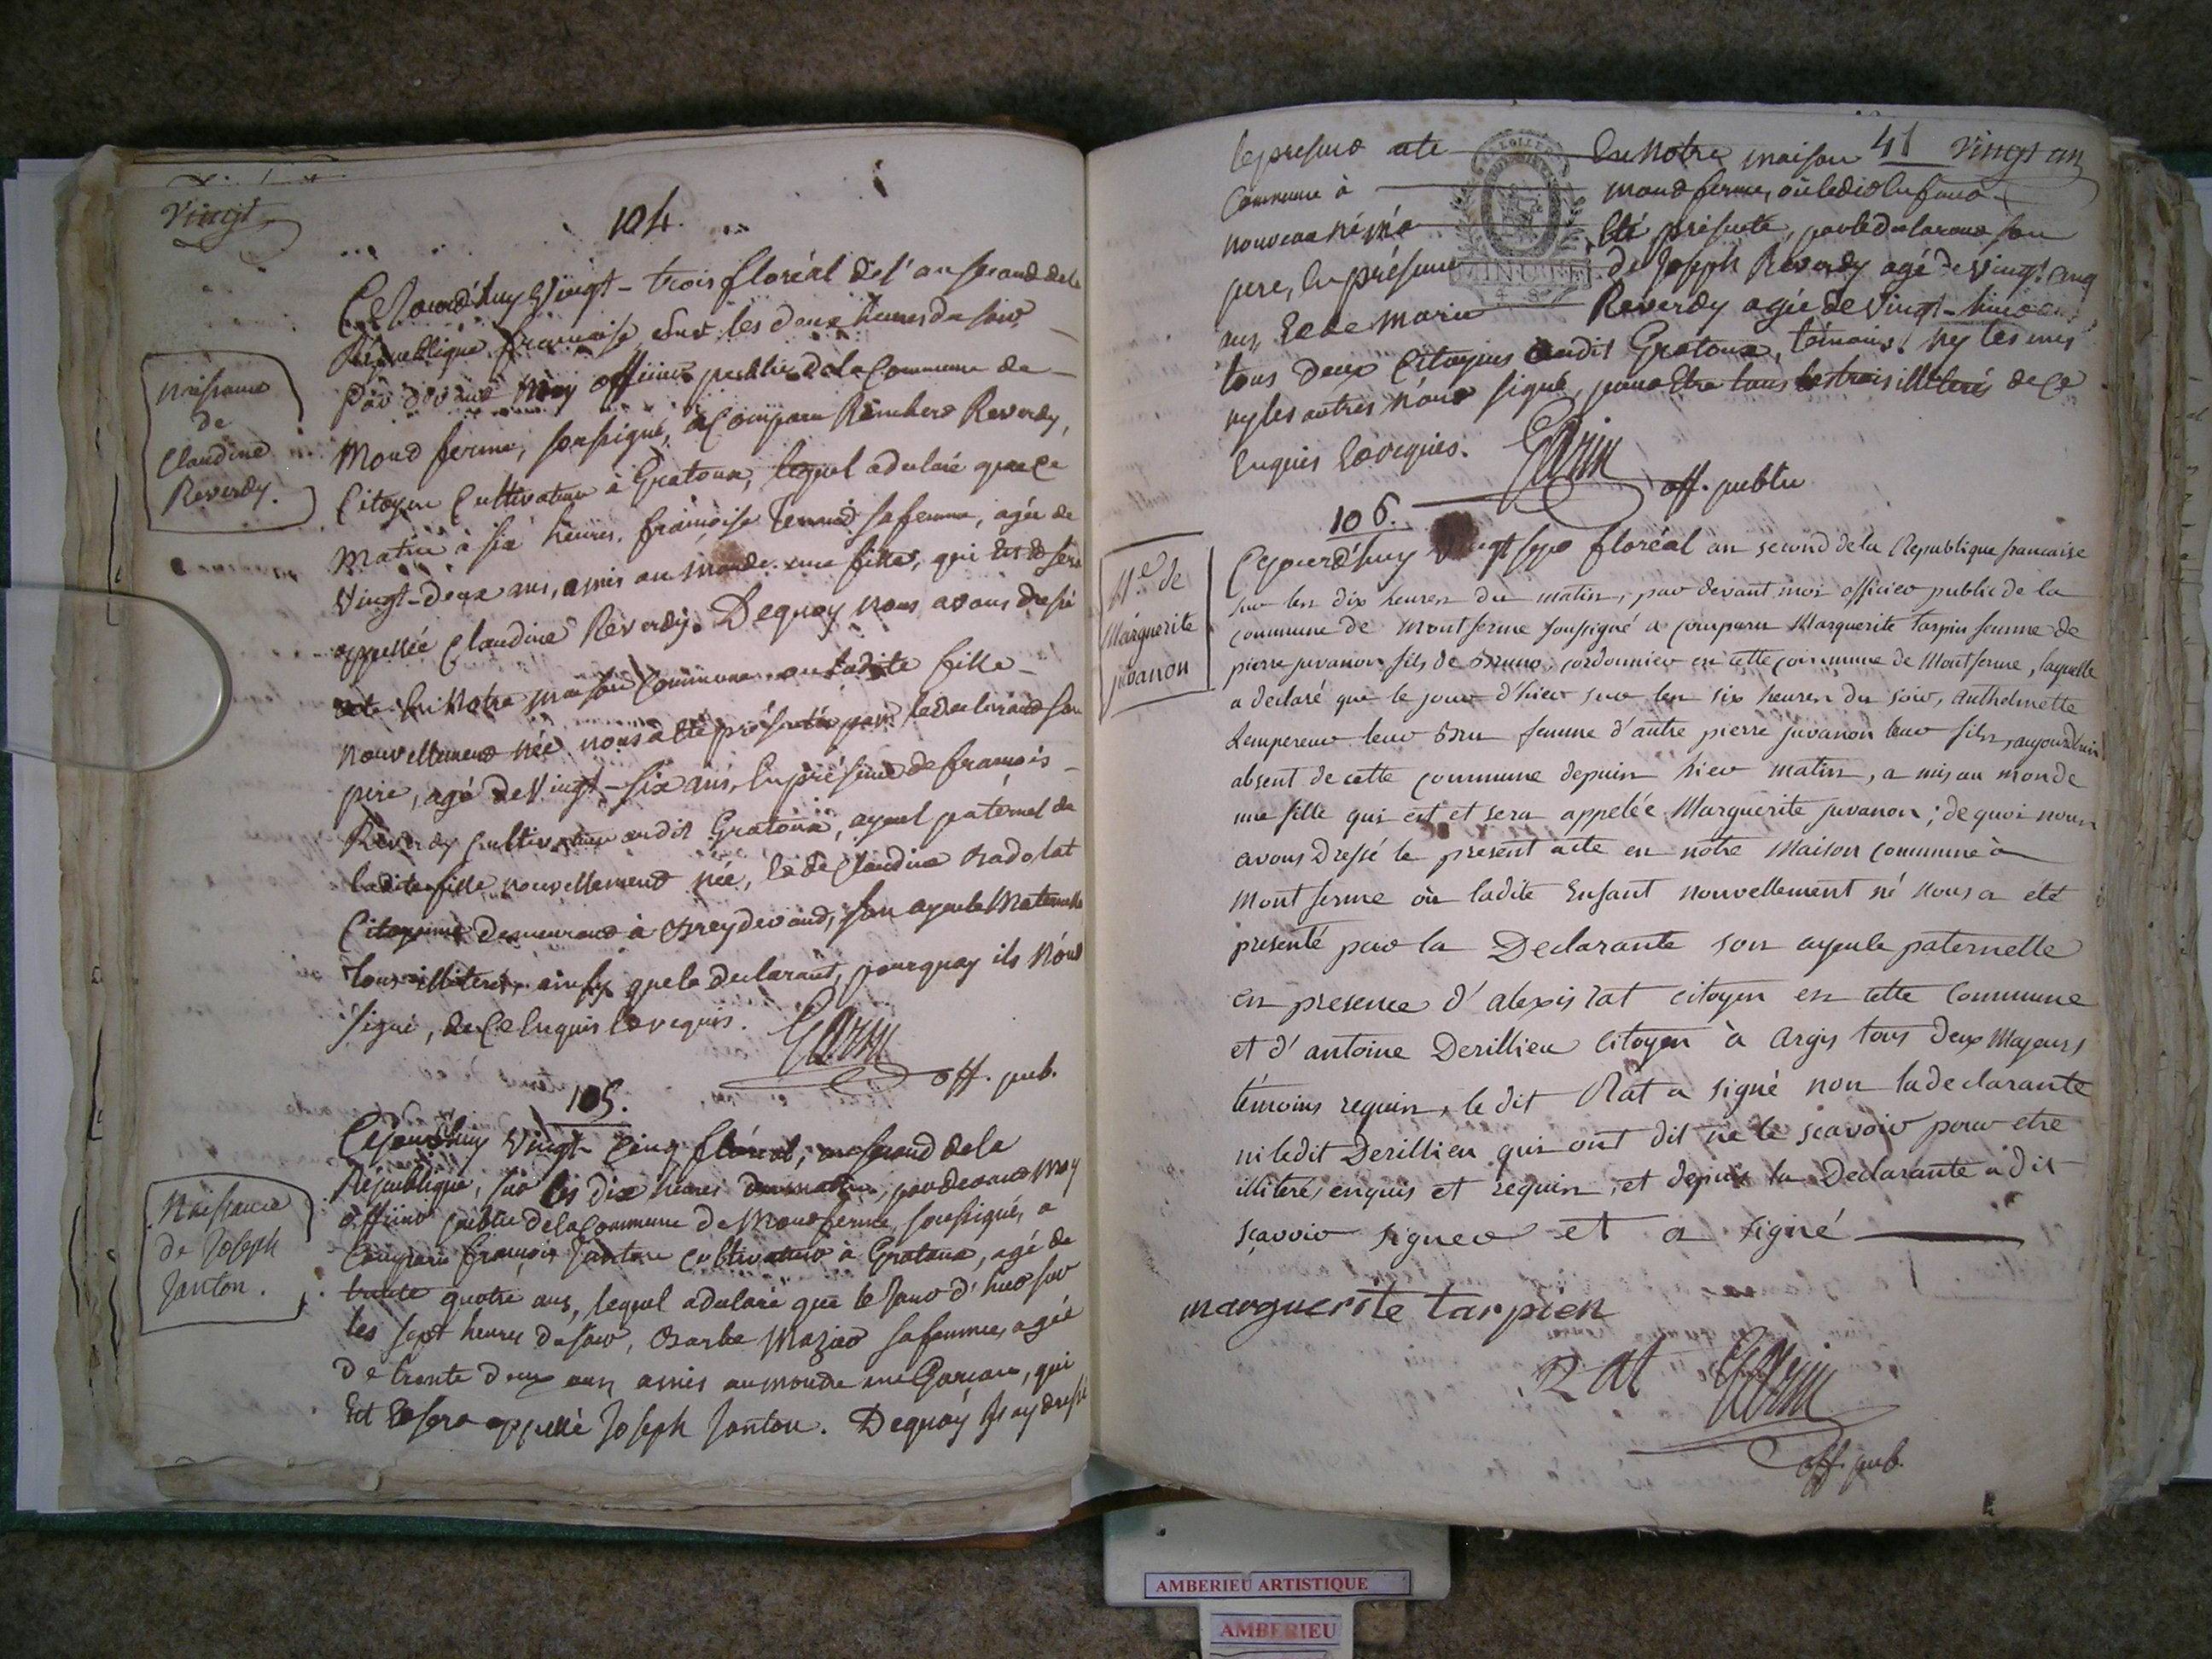 Vingt
104.
Naissance
de
Claudine
Reverdy.
Cejourd'huy Vingt-trois floréal de l'an second de la
République française, sur les deux heures du soir
par devant moy officier public de la Commune de
Mond ferme, soussigné, a Comparu Rembert Reverdy,
Citoyen Cultivateur à Gratoux, lequel a déclaré que ce
Matin à six heures, françoise Tenand sa femme, agée de
Vingt-deux ans, a mis au monde une fille, qui est et sera
appellée Claudine Reverdy. Dequoy nous avons dressé
acte En Notre maison Commune ou ladite fille
Nouvellement née nous a été présentée par le déclarant son
père, agé de Vingt-six ans, En présence de françois
Reverdy Cultivateur audit Gratoux, ayeul paternel de
ladite fille nouvellement née, Et de Claudine Badolat
Citoyenne demeurant à Breydevand, son ayeule Maternelle
tous illiterés, ainsy que le déclarant, pourquoy ils n'ont
signé, de ce Enquis Et requis.
Garin
off. pub.
105.
Naissance
de Joseph
Janton.
Cejourd'huy Vingt-Cinq floréal, an second de la
République, sur les dix heures du matin, par devant moy
officier public de la Commune de Mondferme, soussigné, a
Comparu françois Janton Cultivateur à Gratoux, agé de
trente quatre ans, lequel a déclaré que le Jour d'hier sur
les sept heures du soir, Barbe Mazier sa femme, agée
de trente deux ans a mis au monde un Garçon, qui
Est Et sera appellé Joseph Janton. Dequoy J'ay dressé
le présent acte En Notre maison 41 Vingt un
Commune à Mond ferme, où ledit Enfant
nouveau né m'a été présenté, par le déclarant son
pere, En présence de Joseph Reverdy agé de Vingt cinq
ans, Et de Marie Reverdy agée de Vingt-huit ans,
tous deux Citoyens audit Gratoux, témoins. ny les uns
ny les autres n'ont signé, pour Etre tous les trois illiterés de ce
Enquis Et requis. Garin
off. public
106.
N.ce de
Marguerite
juvanon
Cejourd'huy Vingt sept floréal an second de la Republique francaise
sur les dix heures du matin, par devant moi officier public de la
commune de Montferme soussigné a comparu Marguerite Tarpin femme de
pierre juvanon fils de Bruno, cordonnier en cette commune de Montferme, laquelle
a déclaré que le jour d'hier sur les six heures du soir, anthelmette
Lempereur leur Bru femme d'autre pierre juvanon leur fils, aujourd'huy
absent de cette commune depuis hier matin, a mis au monde
une fille qui est et sera appelée Marguerite juvanon; de quoi nous
avons Dressé le present acte en notre Maison commune à
Mont ferme où ladite Enfant nouvellement né nous a été
presenté par la Declarante son ayeule paternelle
en presence d'alexis rat citoyen en cette Commune
et d'antoine Derillieu Citoyen à Argis tous deux Majeurs
témoins requis, le dit Rat a signé non la declarante
ni ledit Derillieu qui ont dit ne le scavoir pour etre
illiteré, enquis et requis, et depuis la Declarante a dit
scavoir signer et a signé
marguerite tarpien
Rat Garin
off. pub.
AMBERIEU ARTISTIQUE
AMBERIEU